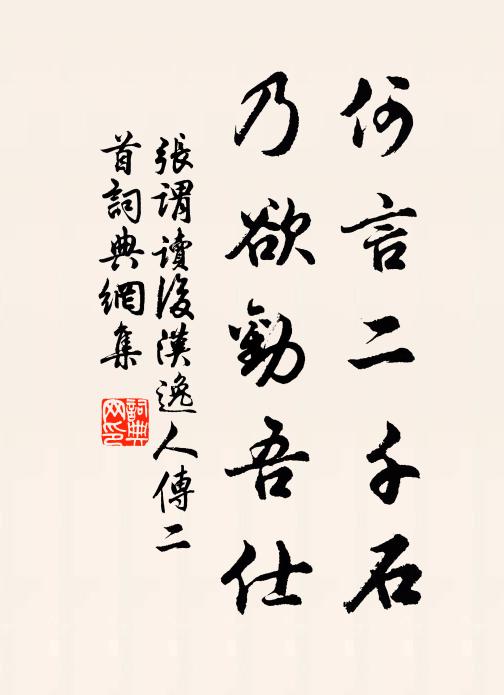 何言二千石
乃欲勸吾仕
張謂讀後漢逸人傳二
首詞典網集
詞典網印